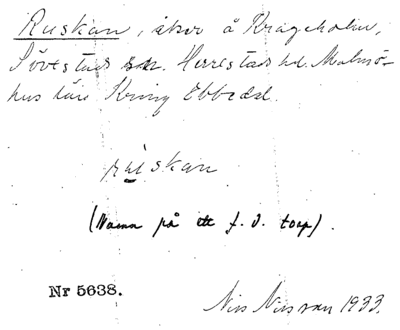 Ruskan, åker å Krageholm,
Sövestad sn. Herrestads hd. Malmö-
hus län. Kring Ebbedal.
rúskan
(Namn på ett f. d. torp).
Nr 5638.
Nils Nilsson 1933.